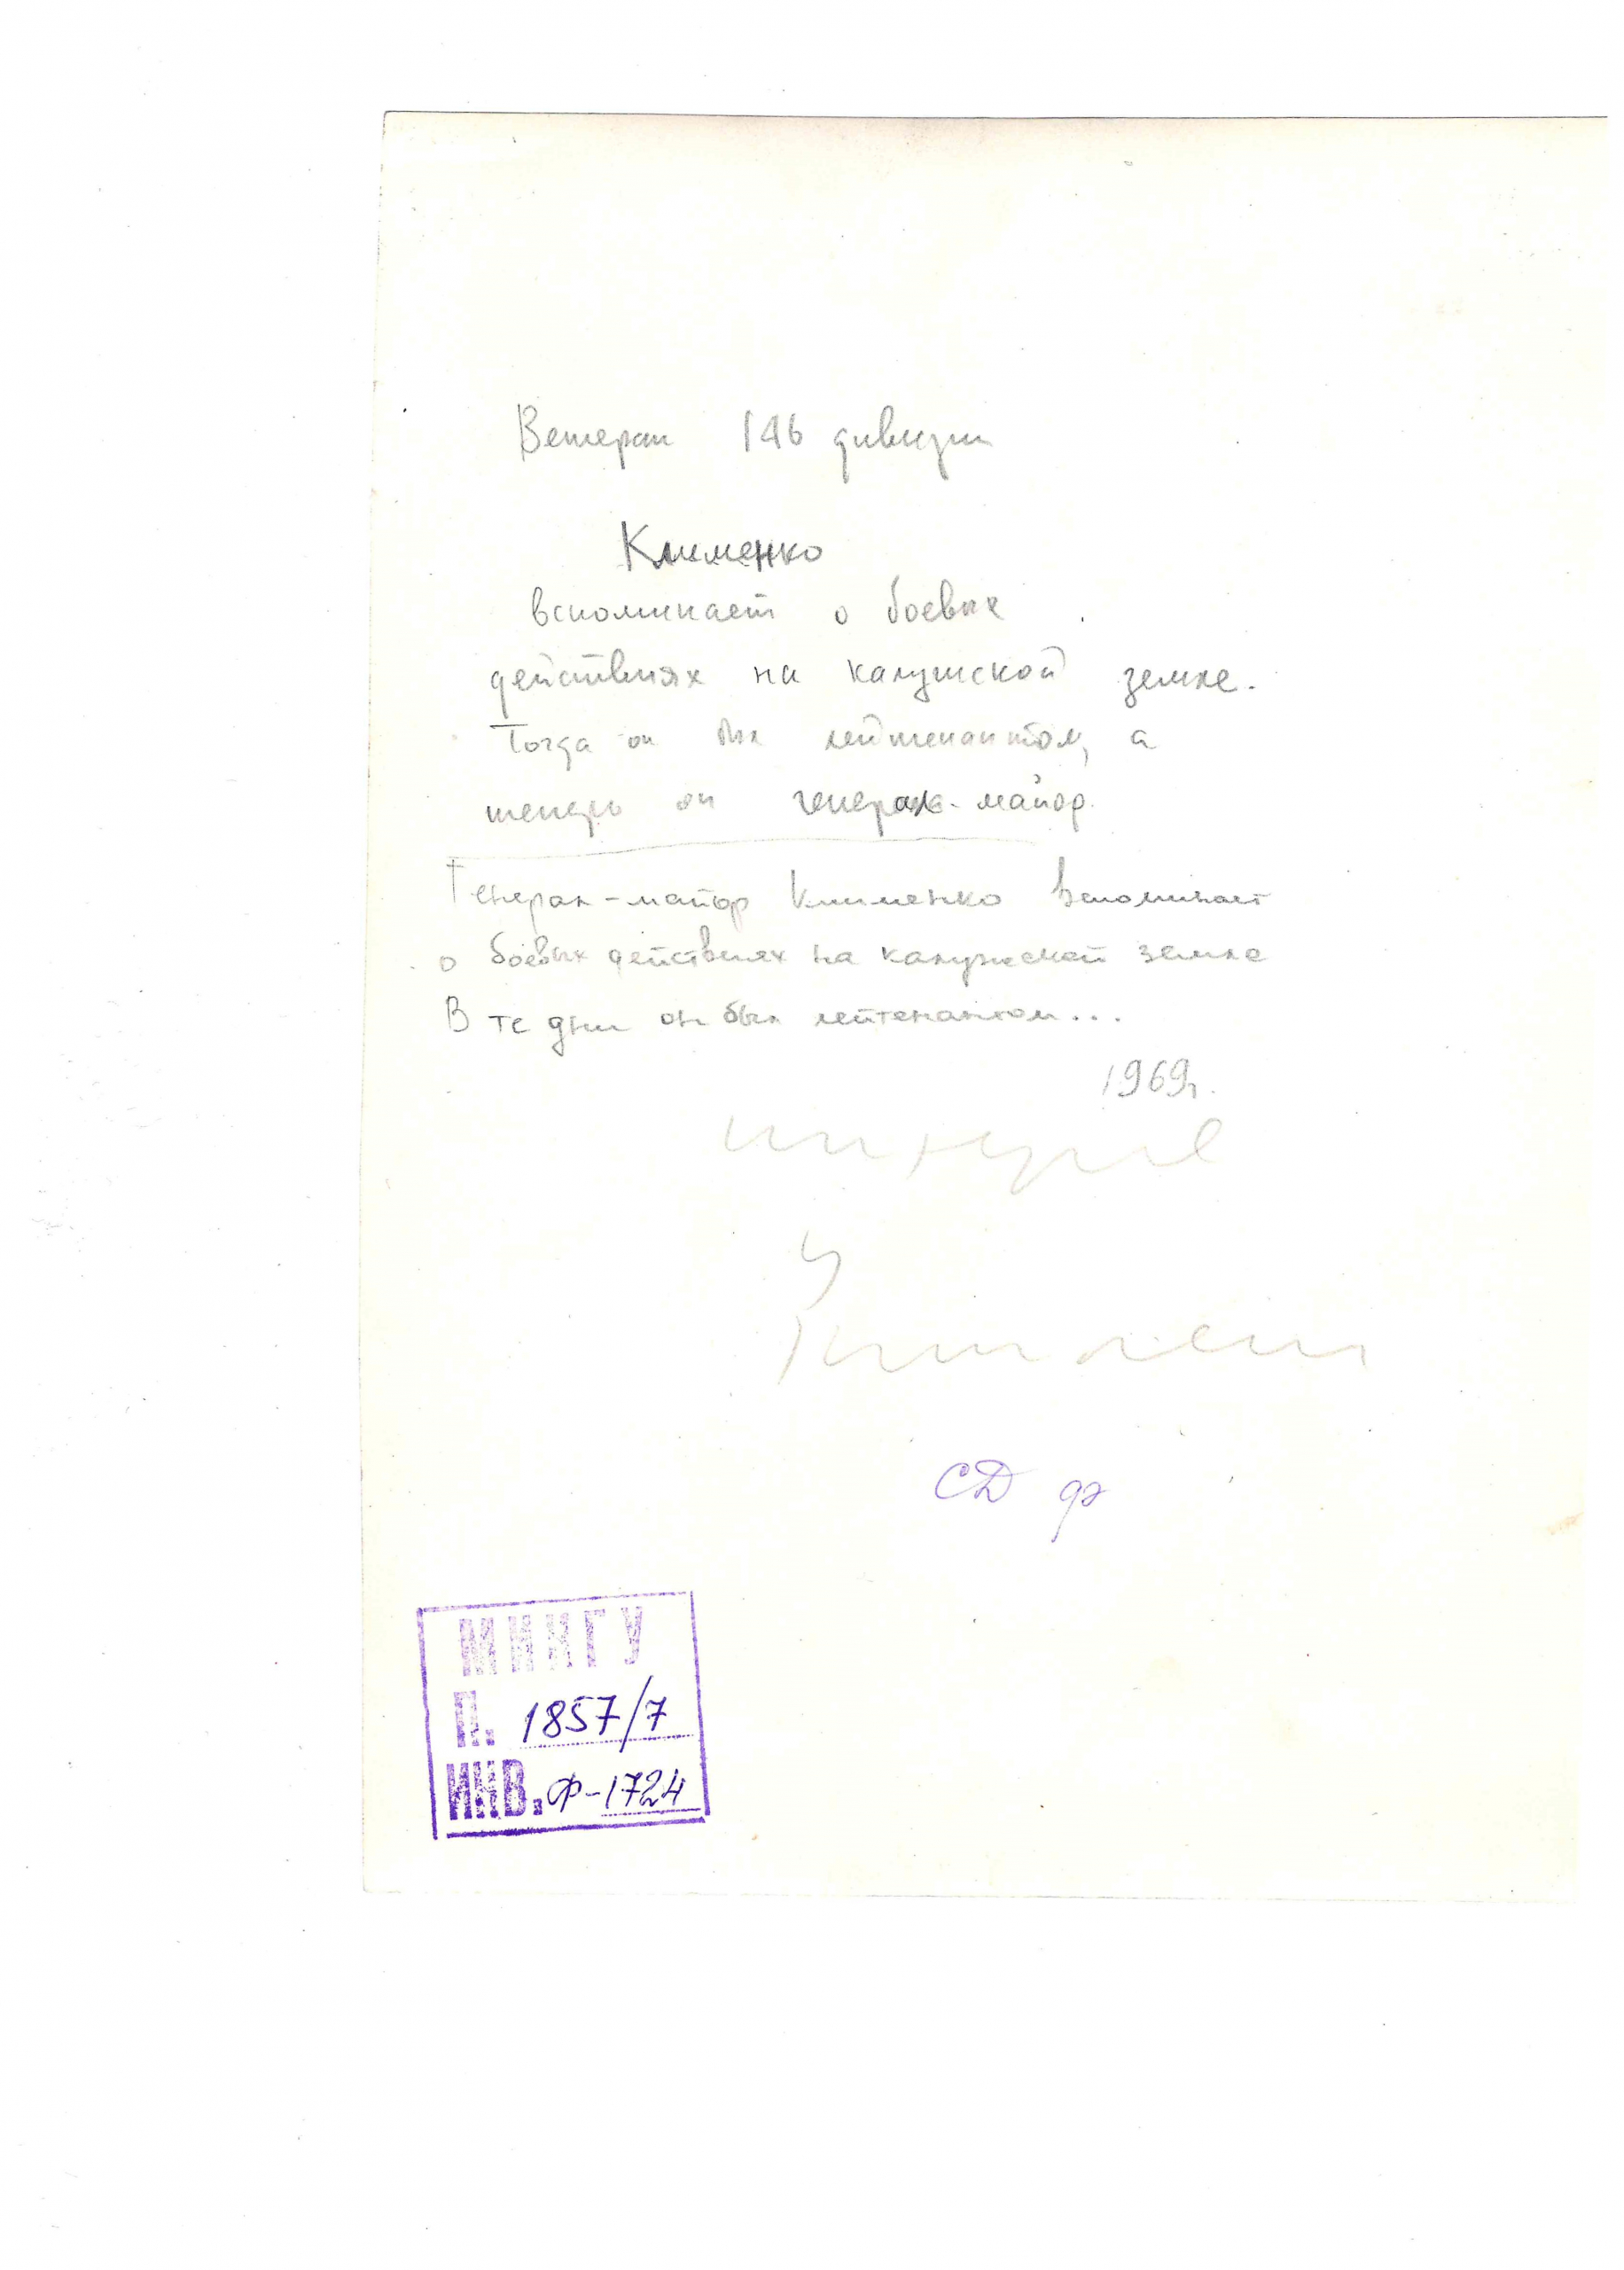 Ветеран 146 дивизии
Клименко
вспоминает о боевых
действиях на калужской земле.
Тогда он был лейтенантом, а
теперь он генерал-майор.
Генерал-майор Клименко вспоминает
о боевых действиях на калужской земле
В те дни он был лейтенантом...
1969г.
СД ф
МИНГУ
П. 1857/7
ИНВ. Ф-1724